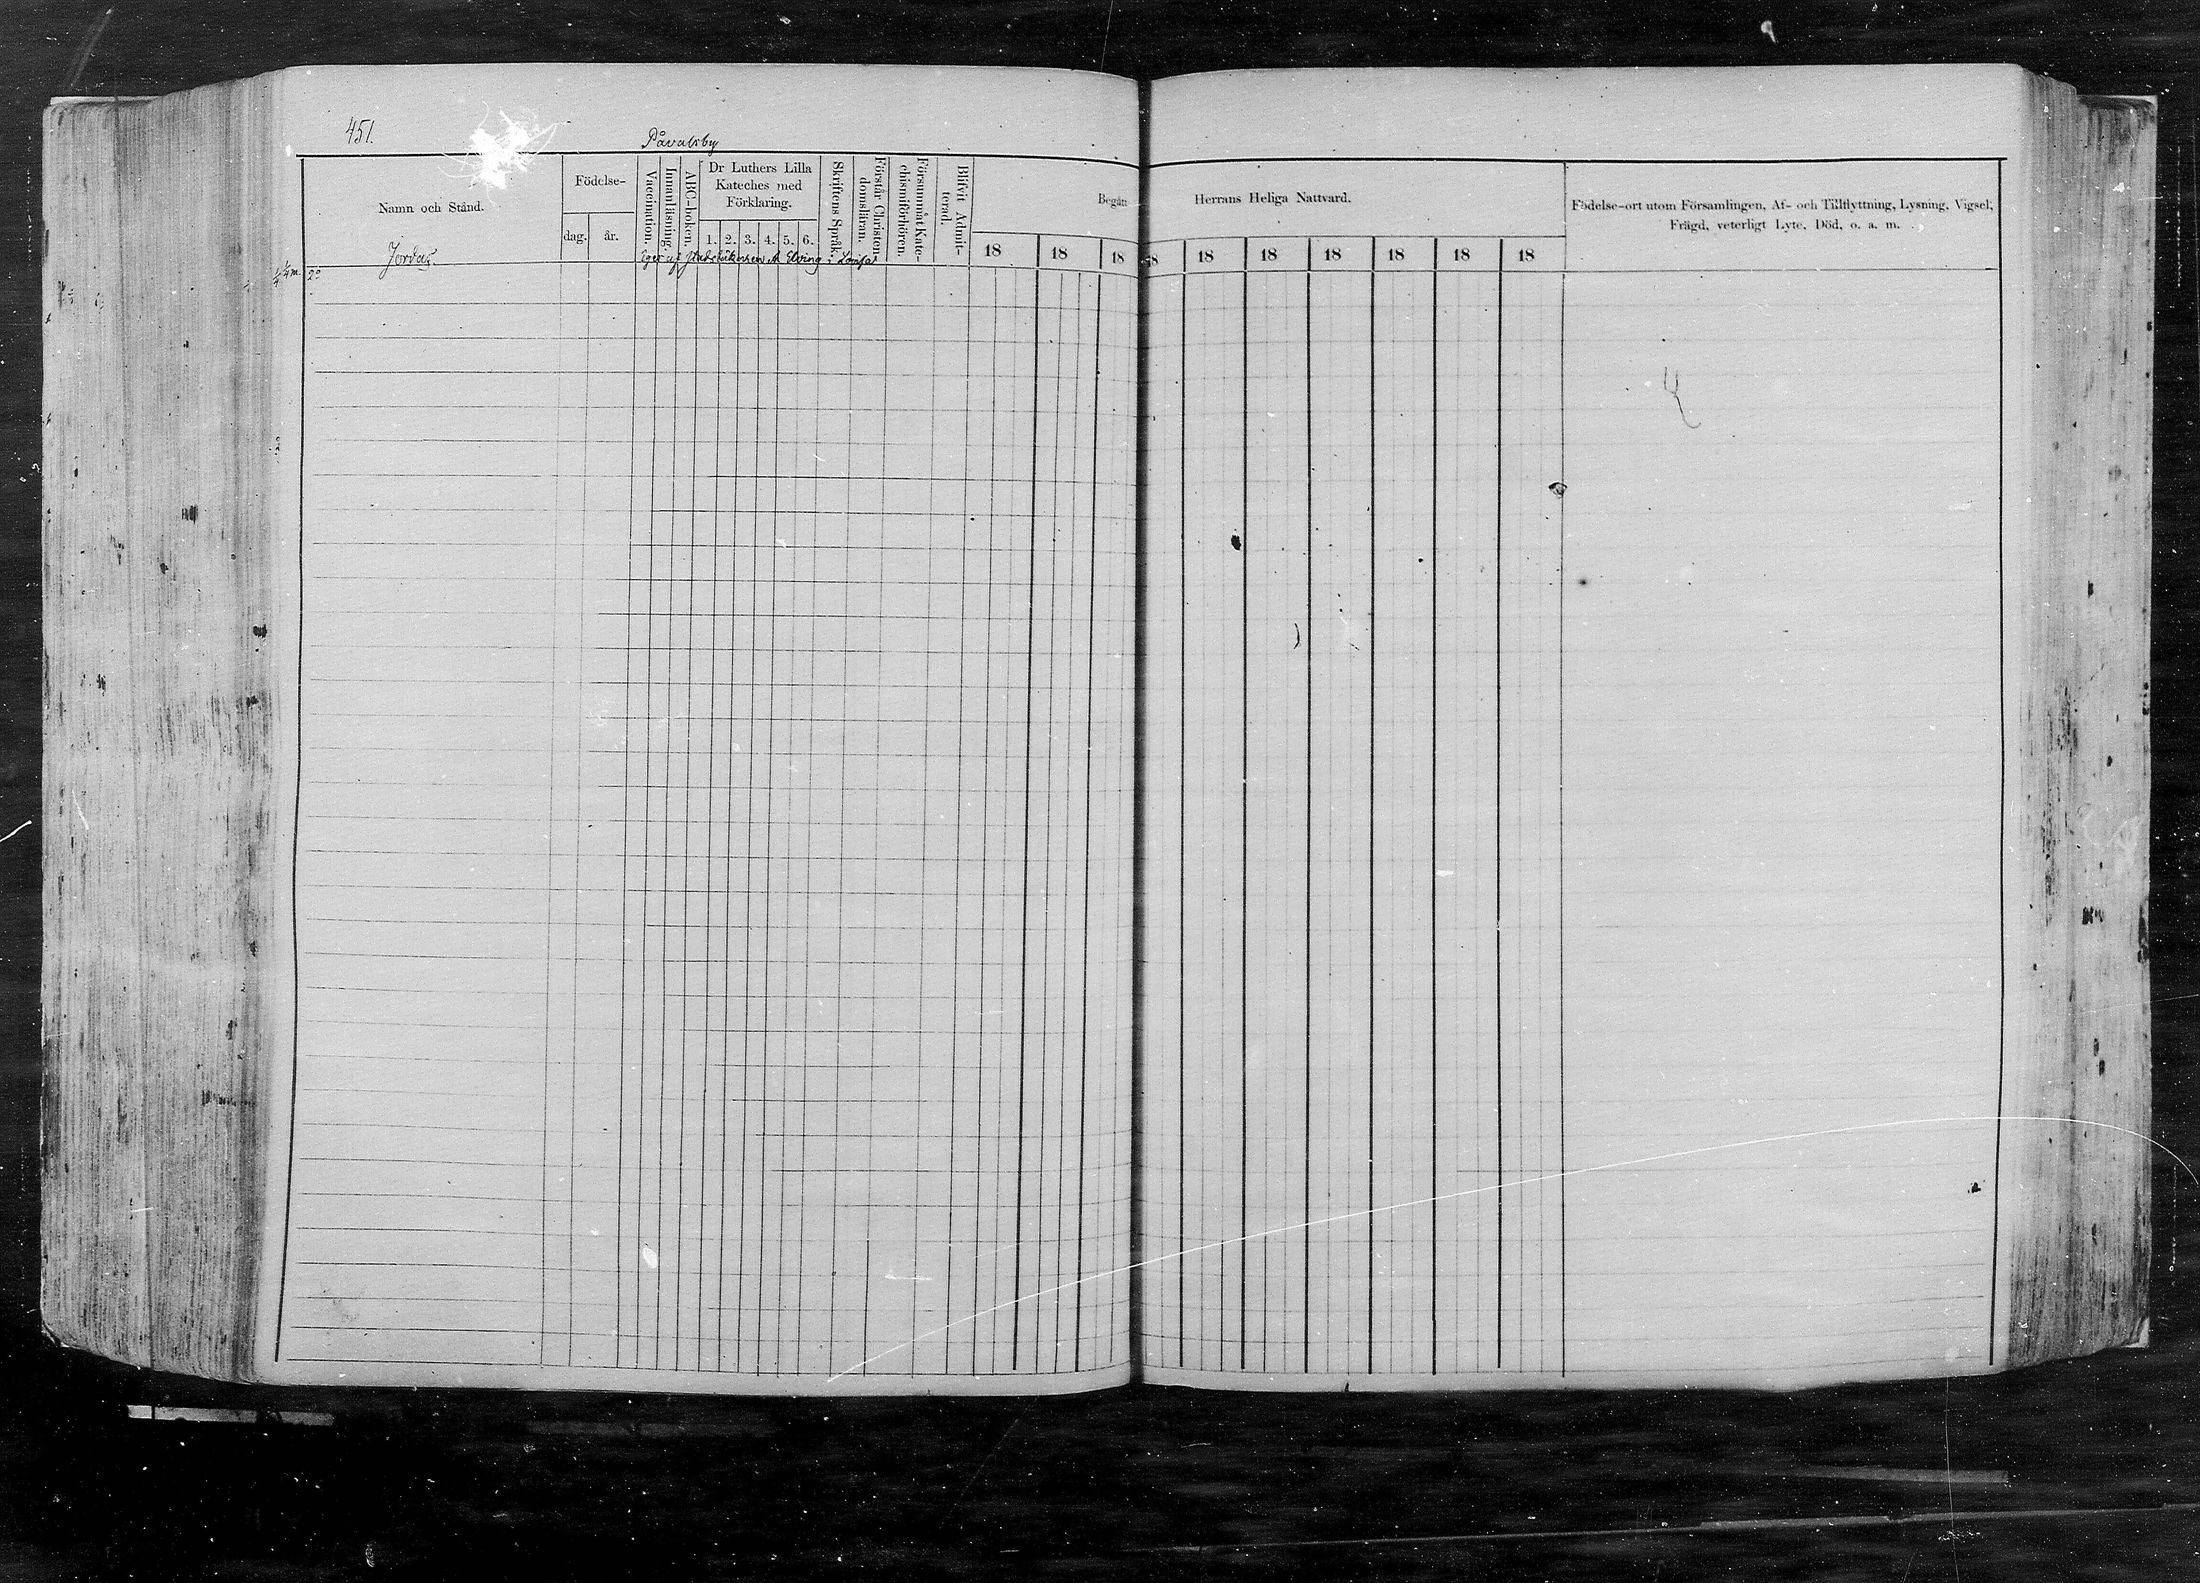 451.
Påvalsby
Namn och Stånd.
Födelse-
dag.
år.
Vaccination.
Innanläsning.
ABC-boken.
Dr Luthers Lilla
Kateches med
Förklaring.
1. 2. 3. 4. 5. 6.
Skriftens Språk.
Förstår Christen-
domsläran.
Försummat Kate-
chismiförhören.
Blifvit Admit-
terad.
Begått Herrans Heliga Nattvard.
18 18 18 18 18 18 18 18 18 18
Födelse-ort utom Församlingen, Af- och Tillflyttning, Lysning, Vigsel,
Frägd, veterligt Lyte, Död, o. a. m.
Jordas.
Eges af Elving i